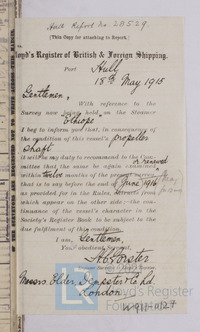 Hull Report No. 28529.
(This Copy for attaching to Report.)
Lloyd's Register of British & Foreign Shipping.
Port Hull
18th May 1915
Gentlemen,
With reference to the
Survey now being held on the Steamer
"Ethiope"
I beg to inform you that, in consequence of
the condition of this vessel's propeller
shaft
it will be my duty to recommend to the Com-
mittee that the same be again examined or renewed
within twelve months of the present survey
that is to say before the end of June 1916
as provided for in the Rules, extracts from
which appear on the other side—the con-
tinuance of the vessel's character in the
Society's Register Book to be subject to the
due fulfilment of this condition.
I am, Gentlemen,
Your obedient Servant,
Messrs Elder Dempster & Co Ld
London
Lloyd's Register
Foundation